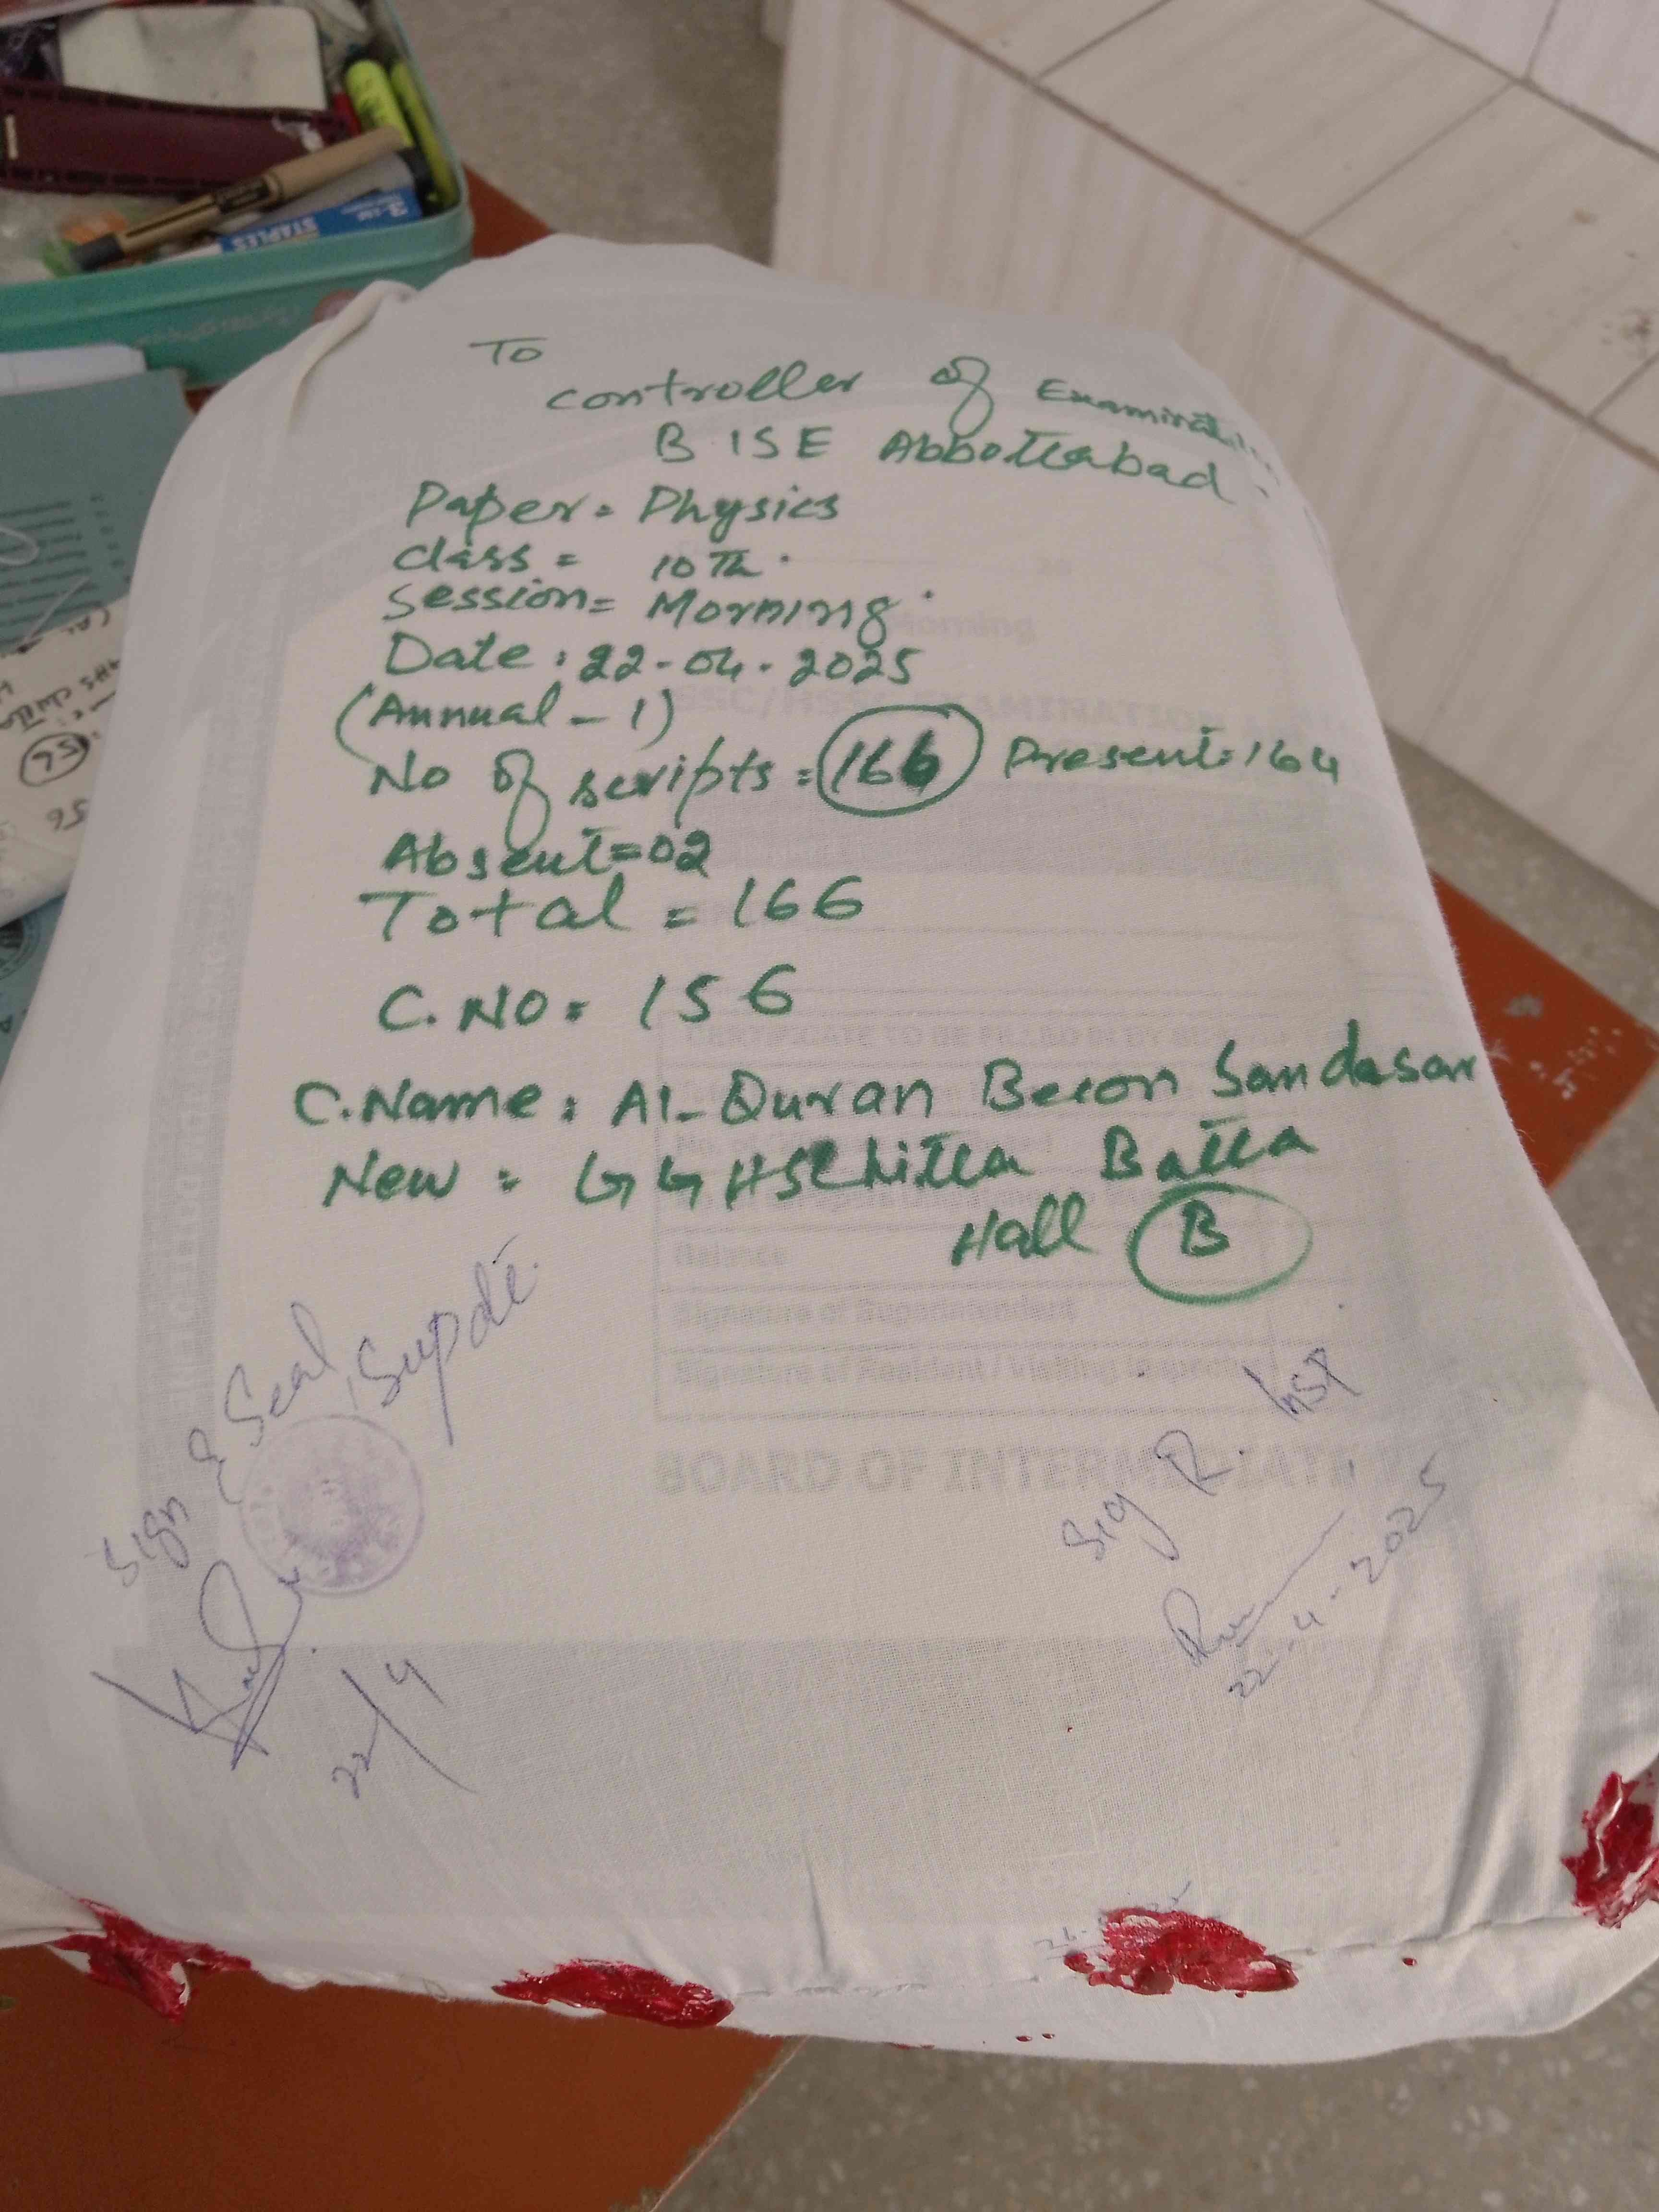 To
Controller of Examination
B ISE Abbottabad.
Paper = Physics
Class = 10Th.
Session = Morning.
Date: 22-04-2025
(Annual - 1)
No of scripts = 166 Present: 164
Absent = 02
Total = 166
C.NO = 156
C.Name: Al-Quran Becon Sandesar
New = GGHS Chitta Batta
Hall B
Sign & Seal
Supdt.
22/4
Sig R. Insp.
22-4-2025
STAPLES
Morning
SSC/HSSC EXAMINATION
CERTIFICATE TO BE FILLED IN BY
Balance
Signature of Superintendent
Signature of Assistant / Visiting
BOARD OF INTERMEDIATE
56
56